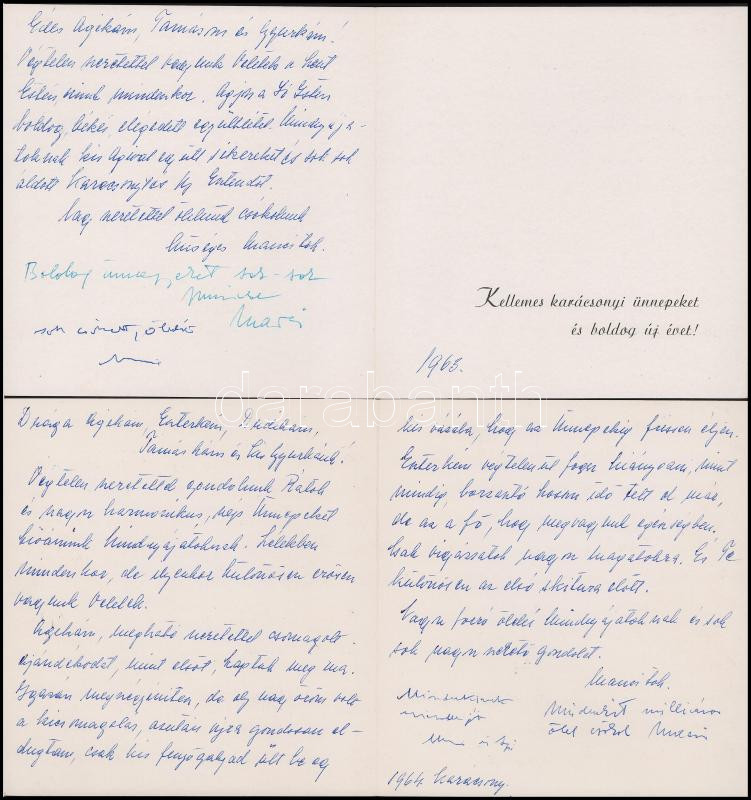 Édes Ágikám, Tamásom és Gyurkám!
Végtelen szeretettel vagyunk Veletek a Szent
Estén, mint mindenkor. Adjon a Jó Isten
boldog, békés, elégedett együttlétet. Mindnyája-
toknak kis Ágival együtt sikereket és sok sok
áldott Karácsonyt és Uj Esztendőt.
Nagy szeretettel ölelünk csókolunk
hűséges Mamóstok.
Boldog ünnepeket sok-sok
sok
Kellemes karácsonyi ünnepeket
és boldog új évet!
1963.
Drága Ágikám, Eszterkém,
Tamáskám és kis Gyurkánk!
Végtelen szeretettel gondolunk Rátok
és nagyon harmonikus, szép Ünnepeket
kívánunk Mindnyájatoknak. Lélekben
mindenkor, de ilyenkor különösen erősen
vagyunk Veletek.
Ágikám, megható szeretettel csomagolt
ajándékodat, mint elsőt, kaptam meg ma.
Igazán megszégyenítően, de oly nagy öröm volt
a kicsomagolás, azután újra gondosan el-
dugtam, csak kis fenyőgallyad ült be egy
kis vázába, hogy az Ünnepekig frissen éljen.
Eszterkém végtelenül fogsz hiányozni, mint
mindig, borzasztó hosszu idő telt el már,
de az a fő, hogy megvagyunk egészségben.
Csak vigyázzatok nagyon magatokra. És Te
különösen az első skitura előtt.
Nagyon forró ölelés Mindnyájatoknak és sok
sok nagyon szerető gondolat.
Mamóstok.
Mindenkit milliószor
ölel csókol
1964. Karácsony.
darabanth